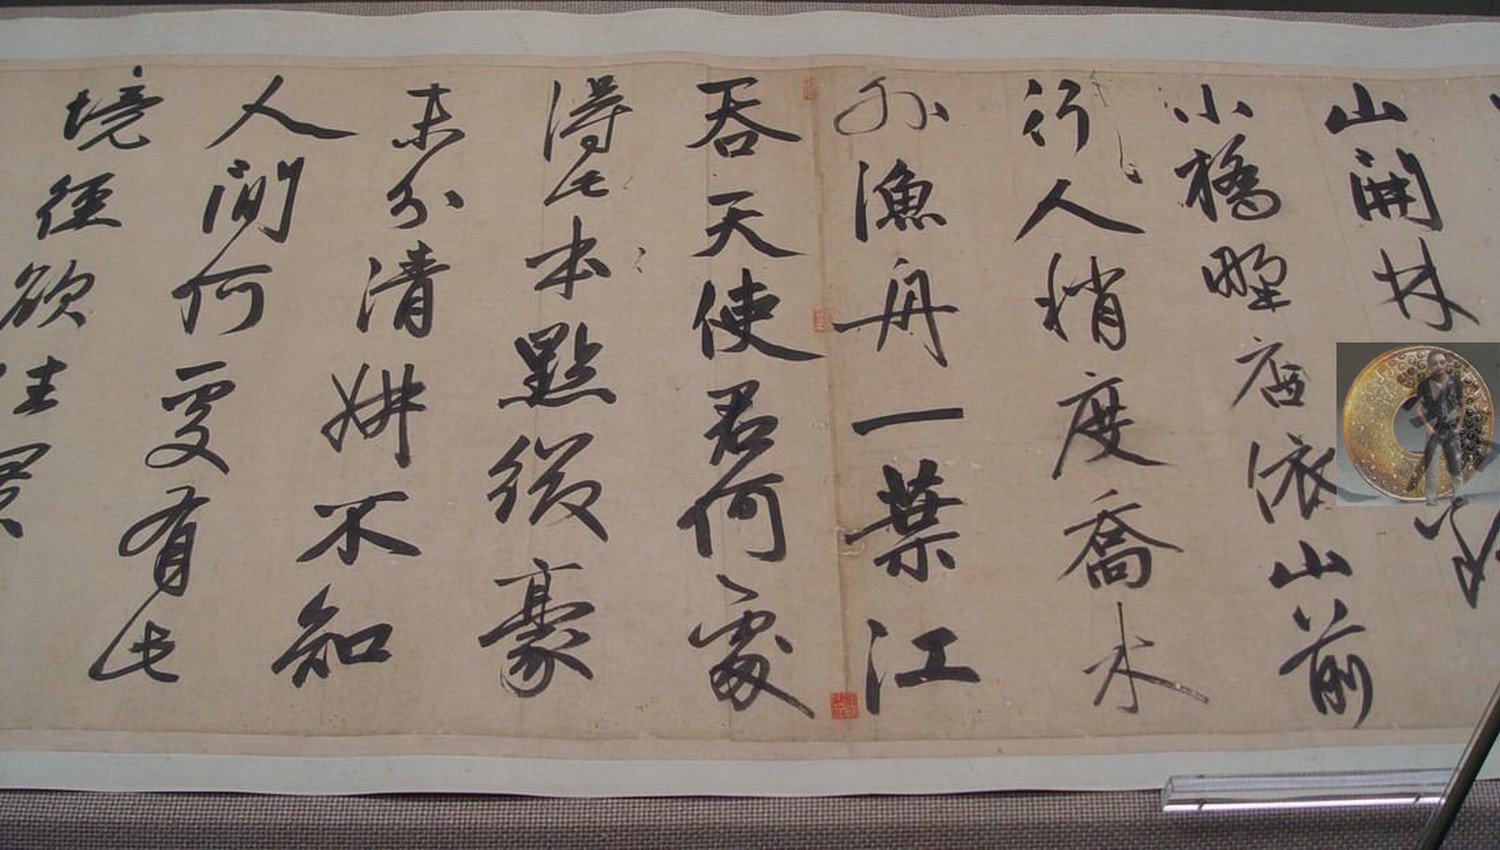 山開林
小橋野店依山前
行人稍度喬木
外漁舟一葉江
吞天使君何處
得此本點綴豪
末分清妍不知
人間何處有此
境徑欲往買